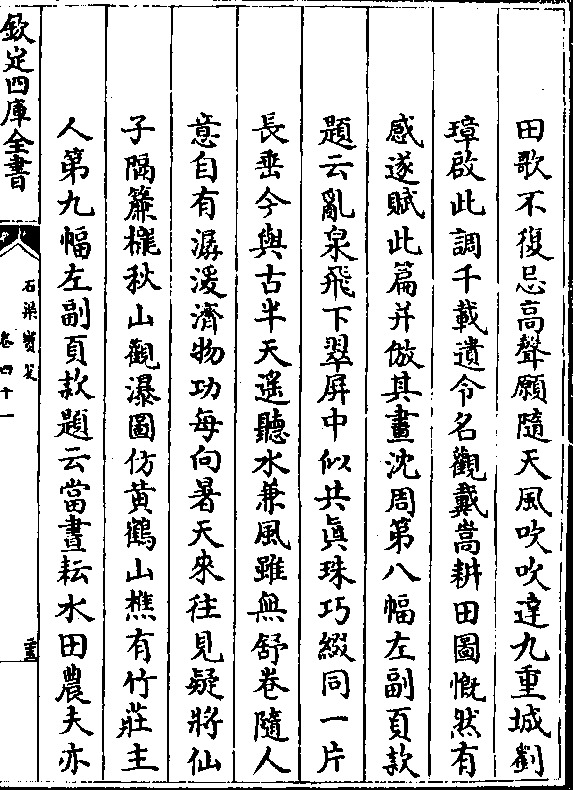 田歌不復忌高聲願隨天風吹吹達九重城劉
璋啟此調千載遺令名觀戴嵩耕田圖慨然有
感遂賦此篇并倣其畫沈周第八幅左副頁款
題云亂泉飛下翠屏中似共真珠巧綴同一片
長垂今與古半天遙聽水兼風雖無舒卷隨人
意自有潺湲濟物功每向暑天來往見疑將仙
子隔簾櫳秋山觀瀑圖仿黃鶴山樵有竹莊主
人第九幅左副頁款題云當晝耘水田農夫亦
欽定四庫全書
石渠寶笈
卷四十一